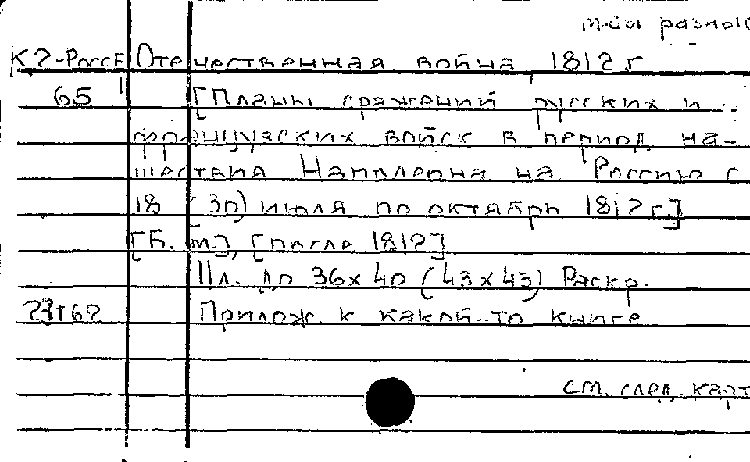 м-бы разные
К2-РоссЕ Отечественная война 1812 г
65 [Планы сражений русских и
французских войск в период на-
шествия Наполеона на Россию с
18 (30) июля по октябрь 1812 г.]
[Б. м.], [после 1812]
11 л. до 36x40 (43x43) Раскр.
Прилож. к какой-то книге
см. след. карт